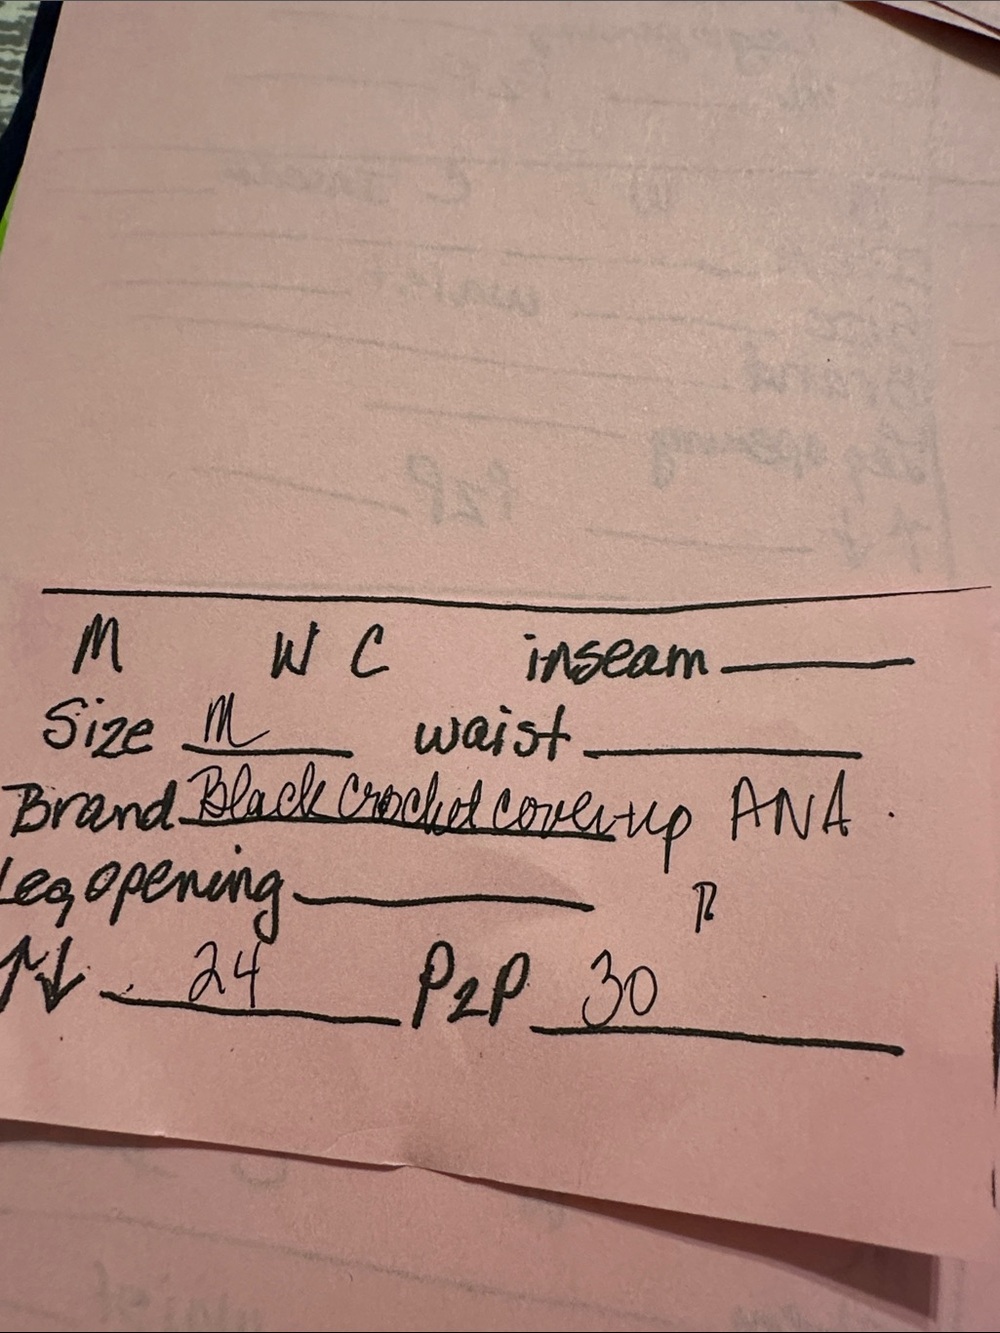 M W C inseam
Size M waist
Brand Black crochet coverup ANA.
Leg opening
↑↓ 24 P2P 30